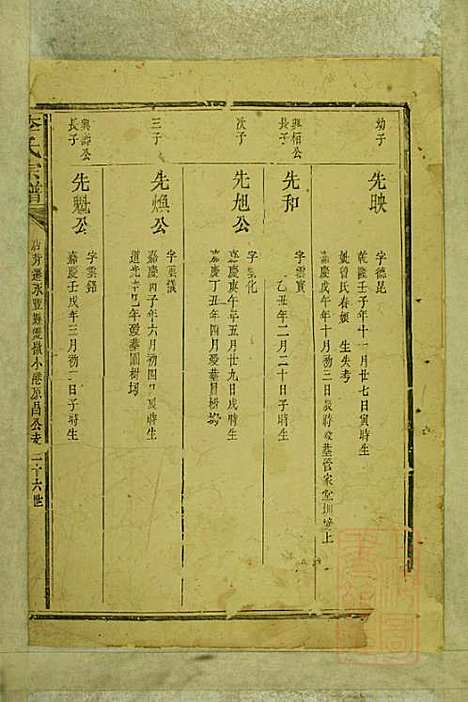 幼子
先映
字德昆
乾隆壬子年十一月廿七日寅時生
曾氏春娘 生失考
嘉慶戊午年十月初三日辰時歿墓管家堂圳塝上
興栢公
長子
先和
字雲賓
乙丑年二月二十日子時生
次子
先旭公
字雲化
嘉慶庚午年五月廿九日戌時生
嘉慶丁丑年四月歿墓園樹塆
三子
先煥公
字雲儀
嘉慶丙子年六月初四日辰時生
道光辛巳年歿墓園樹塆
興壽公
長子
先魁公
字雲錦
嘉慶壬戌年三月初三日子時生
李氏宗譜
昌公支
二十六世